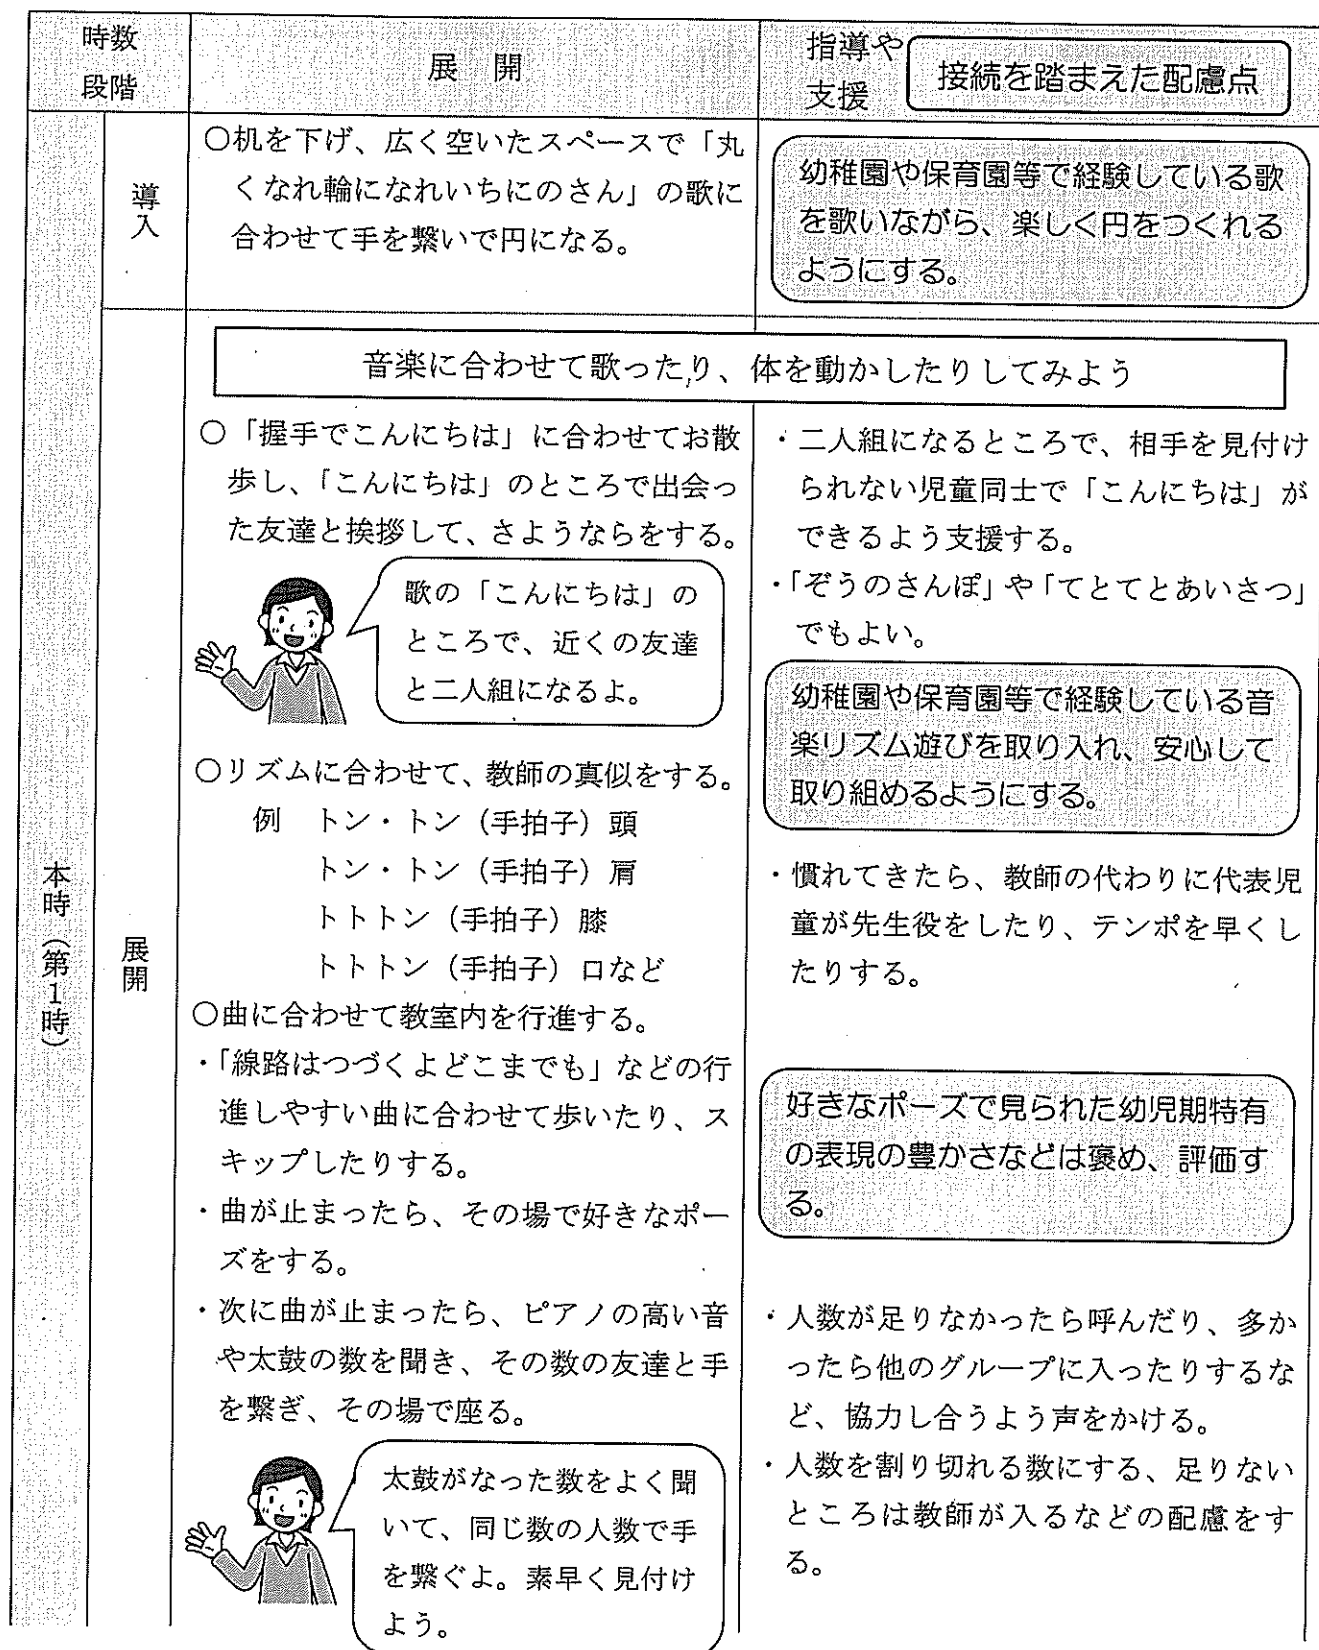 時数
段階
展　開
指導や
支援
接続を踏まえた配慮点
本時（第1時）
導入
○机を下げ、広く空いたスペースで「丸
くなれ輪になれいちにのさん」の歌に
合わせて手を繋いで円になる。
幼稚園や保育園等で経験している歌
を歌いながら、楽しく円をつくれる
ようにする。
展開
音楽に合わせて歌ったり、体を動かしたりしてみよう
○「握手でこんにちは」に合わせてお散
歩し、「こんにちは」のところで出会っ
た友達と挨拶して、さようならをする。
歌の「こんにちは」の
ところで、近くの友達
と二人組になるよ。
○リズムに合わせて、教師の真似をする。
例　トン・トン（手拍子）頭
トン・トン（手拍子）肩
トトトン（手拍子）膝
トトトン（手拍子）口など
○曲に合わせて教室内を行進する。
・「線路はつづくよどこまでも」などの行
進しやすい曲に合わせて歩いたり、ス
キップしたりする。
・曲が止まったら、その場で好きなポー
ズをする。
・次に曲が止まったら、ピアノの高い音
や太鼓の数を聞き、その数の友達と手
を繋ぎ、その場で座る。
太鼓がなった数をよく聞
いて、同じ数の人数で手
を繋ぐよ。素早く見付け
よう。
・二人組になるところで、相手を見付け
られない児童同士で「こんにちは」が
できるよう支援する。
・「ぞうのさんぽ」や「てとてとあいさつ」
でもよい。
幼稚園や保育園等で経験している音
楽リズム遊びを取り入れ、安心して
取り組めるようにする。
・慣れてきたら、教師の代わりに代表児
童が先生役をしたり、テンポを早くし
たりする。
好きなポーズで見られた幼児期特有
の表現の豊かさなどは褒め、評価す
る。
・人数が足りなかったら呼んだり、多か
ったら他のグループに入ったりするな
ど、協力し合うよう声をかける。
・人数を割り切れる数にする、足りない
ところは教師が入るなどの配慮をす
る。